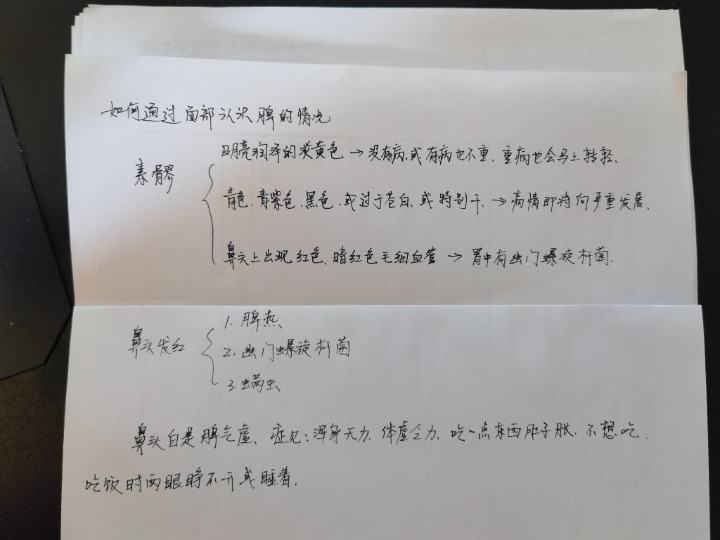 如何通过面部认识脾的情况
明亮润泽的淡黄色 → 没有病,或有病也不重,重病也会马上转轻、
素髎
青色、青紫色、黑色、或过于苍白、或特别干、→ 病情即将向严重发展、
鼻头上出现红色、暗红色毛细血管 → 胃中有幽门螺旋杆菌.
1. 脾热、
鼻头发红
2. 幽门螺旋杆菌
3. 螨虫
鼻头白是脾气虚、症见:浑身无力、体虚乏力、吃一点东西肚子胀、不想吃、
吃饭时两眼睁不开或睡着.